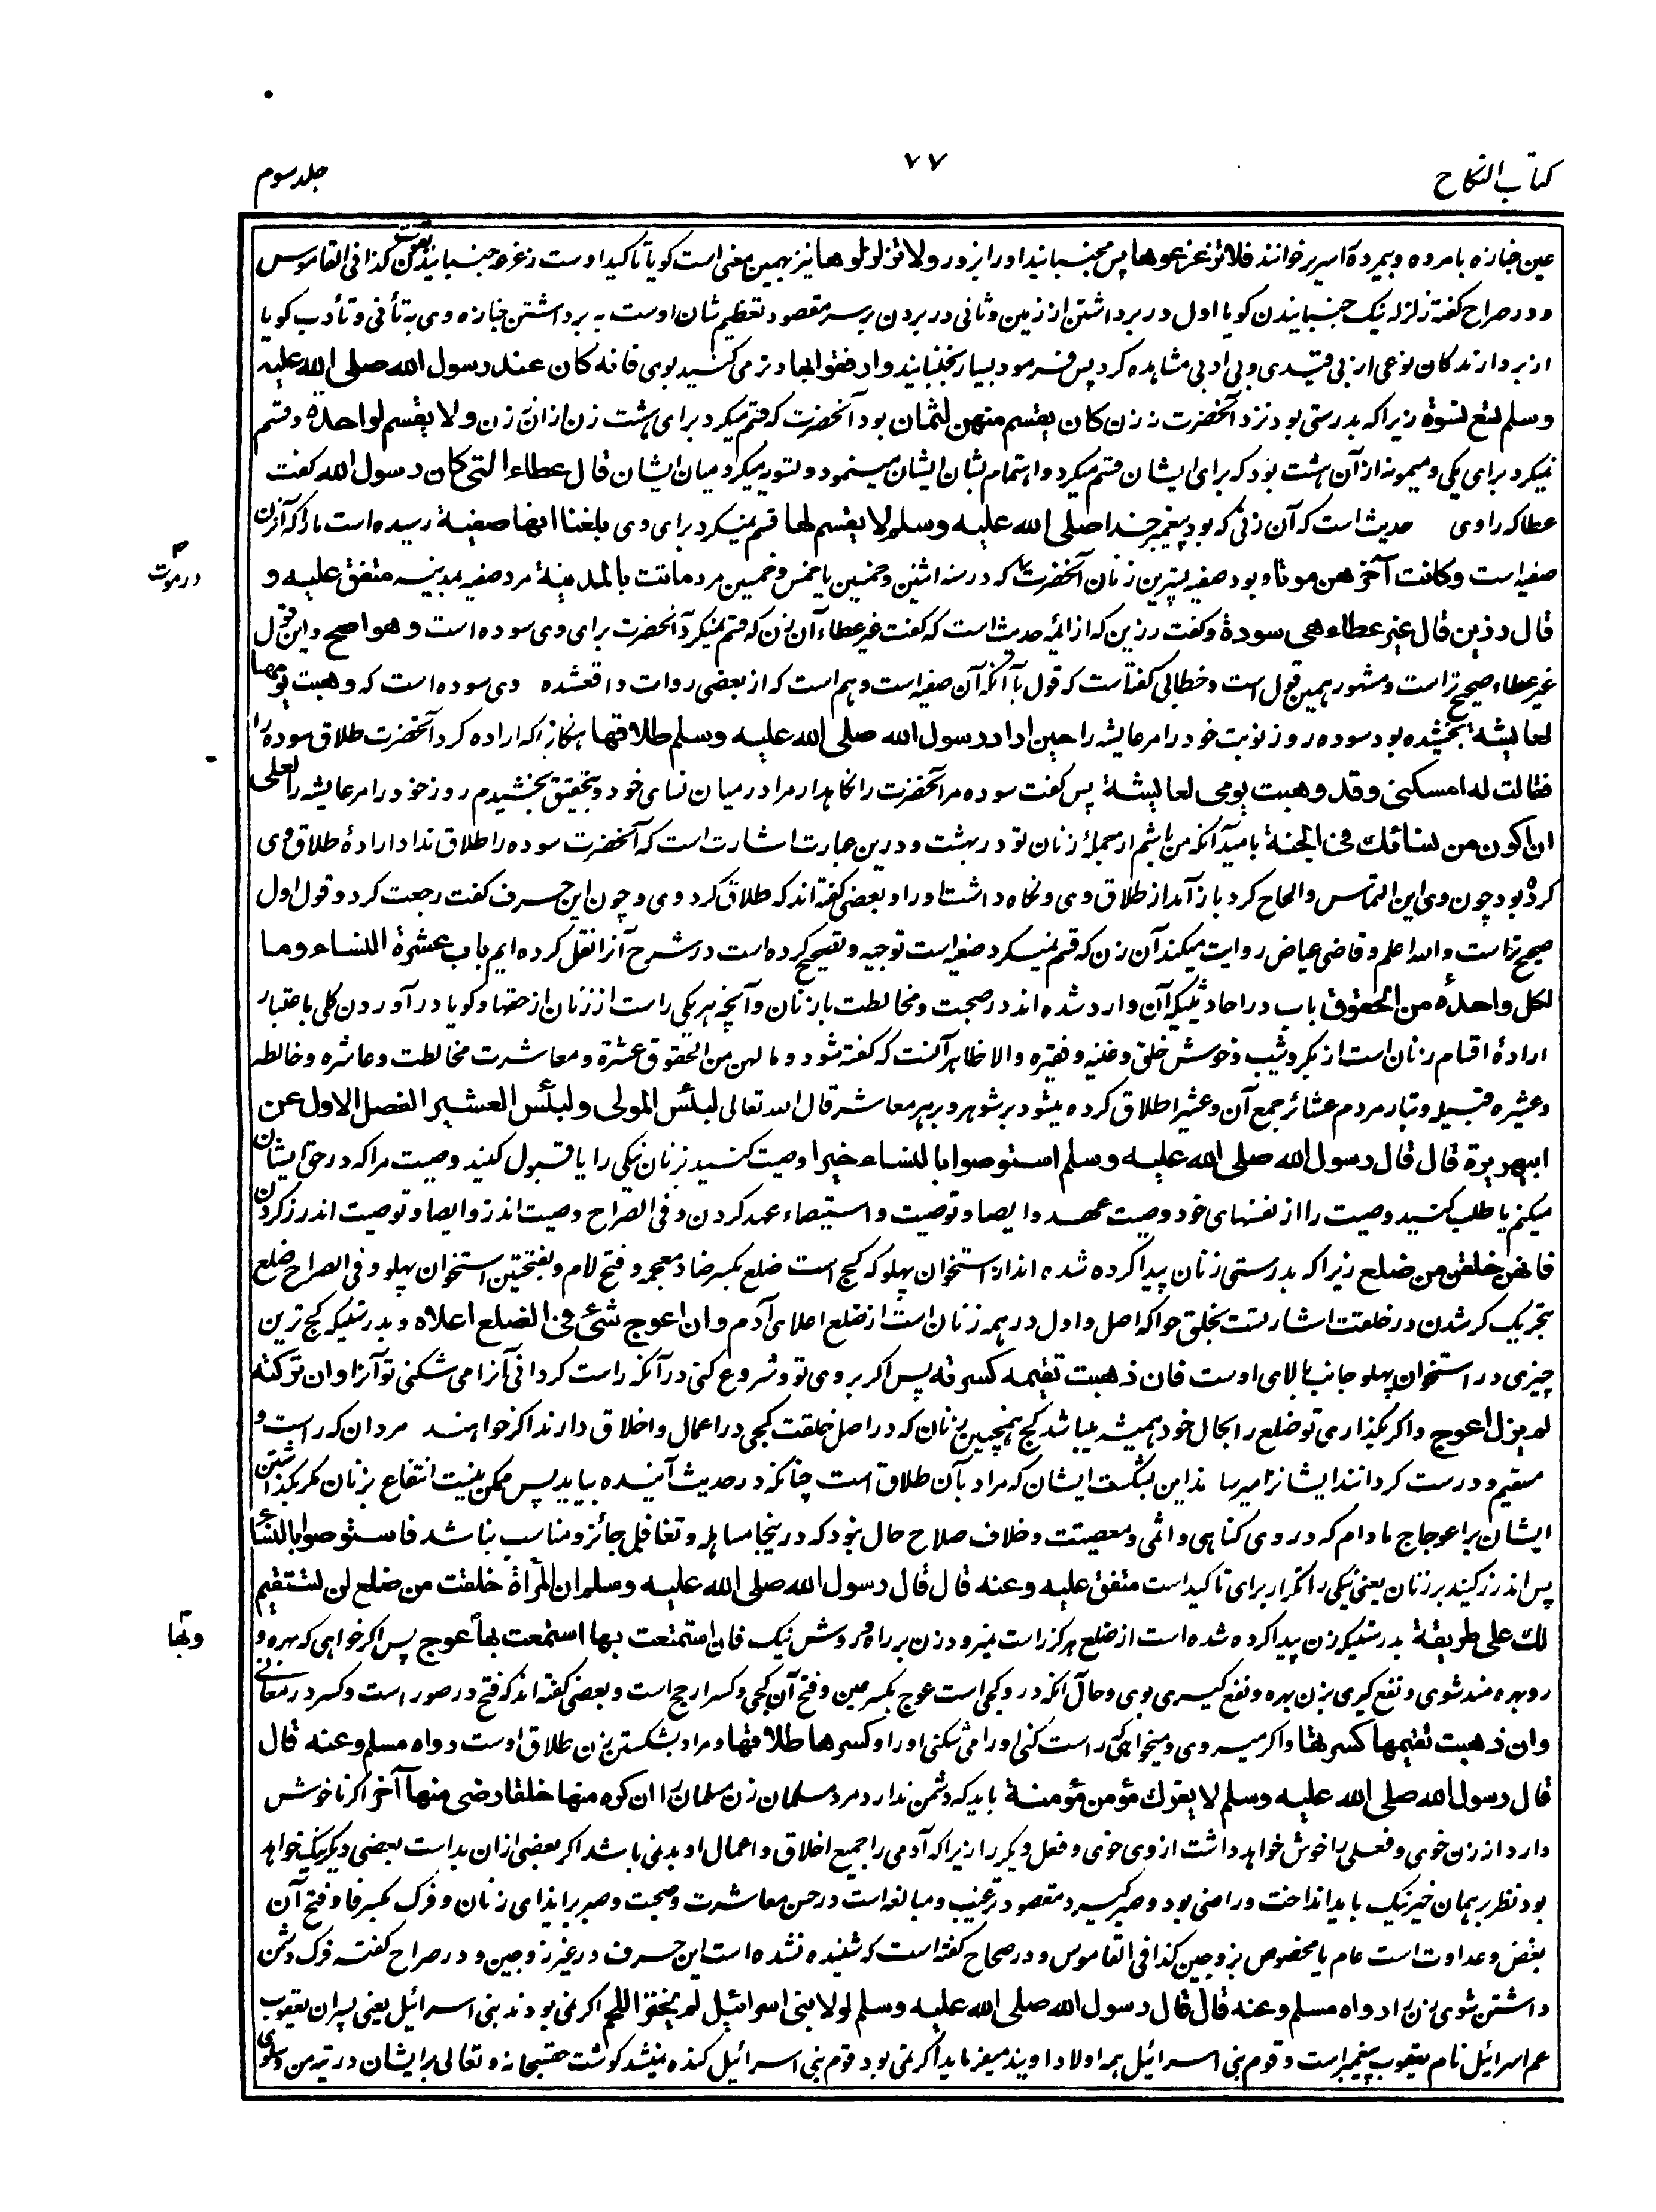 کتاب النکاح
۷۷
جلد سوم
عین جنازه با مرده و بمیردهٔ اسریر خوانند فلا تزعزعوها پس مجنبانید او را بزور ولا تزلزلوها نیز بهمین معنی است کویا تاکید اوست زعزعه جنبانیدن بقوت کذا فی القاموس
و در صراح کفته زلزله نیک جنبانیدن کویا اول در برداشتن از زمین و ثانی در بردن بر سر مقصود تعظیم شان اوست به برداشتن جنازه وی به تأنی و تأدب کویا
از بردارندکان نوعی از بی قیدی و بی ادبی مشاهده کرد پس فرمود بسیار مجنبانید وارفقوا بها و نرمی کنید بوی فانه کان عند رسول الله صلی الله علیه
وسلم تسع نسوة زیرا که بدرستی بود نزد آنحضرت نه زن کان یقسم منهن لثمان بود آنحضرت که قسم میکرد برای هشت زن از ان نه زن ولا یقسم لواحدة و قسم
نمیکرد برای یکی و میمونه از آن هشت بود که برای ایشان قسم میکرد و اهتمام بشان ایشان مینمود و تسویه میکرد میان ایشان قال عطاء التی کان رسول الله کفت
عطا که راوی حدیث است که آن زنی که بود پیغمبر خدا صلی الله علیه وسلم لا یقسم لها قسم نمیکرد برای وی بلغنا انها صفیة رسیده است ما را که آنزن
صفیه است وکانت آخرهن موتا و بود صفیه پسترین زنان آنحضرت که در سنه اثنین و خمسین یا خمس و خمسین مرد ماتت بالمدینة مرد صفیه بمدینه متفق علیه و
در موت
قال رزین قال غیر عطاء هی سودة و کفت رزین که از ائمه حدیث است که کفت غیر عطاء آن زن که قسم نمیکرد آنحضرت برای وی سوده است وهو اصح و این قول
غیر عطاء صحیح تر است و مشهور همین قول است و خطابی کفته است که قول بآنکه آن صفیه است وهم است که از بعضی روات واقع شده وی سوده است که وهبت یومها
لعایشة بخشیده بود سوده روز نوبت خود را مر عایشه را حین اراد رسول الله صلی الله علیه وسلم طلاقها هنکامیکه اراده کرد آنحضرت طلاق سوده را
فقالت له امسکنی وقد وهبت یومی لعایشة پس کفت سوده مر آنحضرت را نکاهدار مرا در میان نسای خود و بتحقیق بخشیدم روز خود را مر عایشه را لعلی
ان اکون من نسائک فی الجنة بامید آنکه من باشم از جملهٔ زنان تو در بهشت و درین عبارت اشارت است که آنحضرت سوده را طلاق نداد ارادهٔ طلاق وی
کرده بود چون وی این التماس و الحاح کرد باز آمد از طلاق وی و نکاه داشت او را و بعضی کفته اند که طلاق کرد وی و چون این حرف کفت رجعت کرد و قول اول
صحیح تر است و الله اعلم و قاضی عیاض روایت میکند آن زن که قسم نمیکرد صفیه است توجیه و تصحیح کرده است در شرح آنرا نقل کرده ایم باب عشرة النساء وما
لکل واحدة من الحقوق باب در احادیثیکه آن وارد شده اند در صحبت و مخالطت با زنان و آنچه هر یکی راست از زنان از حقها و کویا در آوردن کلی باعتبار
ارادهٔ اقسام زنان است از بکر و ثیب و خوش خلق و غنیه و فقیره و الا ظاهر آنست که کفته شود و ما لهن من الحقوق عشرة و معاشرت مخالطت و عاشره و خالطه
و عشیره قبیله و تبار مردم عشائر جمع آن و عشیر اطلاق کرده میشود بر شوهر و بر هر معاشر قال الله تعالی لبئس المولی ولبئس العشیر الفصل الاول عن
ابی هریرة قال قال رسول الله صلی الله علیه وسلم استوصوا بالنساء خیرا وصیت کنید بزنان نیکی را یا قبول کنید وصیت مرا که در حق ایشان
میکنم یا طلب کنید وصیت را از نفسهای خود وصیت عهد و ایصا و توصیت و استیصاء عهد کردن و فی الصراح وصیت اندرز و ایصا و توصیت اندرز کردن
فانهن خلقن من ضلع زیرا که بدرستی زنان پیدا کرده شده اند از استخوان پهلو که کج است ضلع بکسر ضاد معجمه و فتح لام و بفتحتین استخوان پهلو و فی الصراح ضلع
بتحریک کژ شدن در خلقت اشارتست بخلق حوا که اصل و اول در همه زنان است از ضلع اعلای آدم وان اعوج شئ فی الضلع اعلاه و بدرستیکه کج ترین
چیزی در استخوان پهلو جانب بالای اوست فان ذهبت تقیمه کسرته پس اکر بروی تو و شروع کنی در آنکه راست کردانی آنرا می شکنی تو آنرا وان ترکته
لم یزل اعوج و اکر بکذاری تو ضلع را بحال خود همیشه میباشد کج همچنین زنان که در اصل خلقت کجی در اعمال و اخلاق دارند اکر خواهند مردان که راست و
مستقیم و درست کردانند ایشانرا میرسانند این بشکست ایشان که مراد بآن طلاق است چنانکه در حدیث آینده بیاید پس ممکن نیست انتفاع بزنان مکر بکذاشتن
ایشان بر اعوجاج مادام که در وی کناهی و اثمی و معصیت و خلاف صلاح حال نبود که در اینجا مساهله و تغافل جائز و مناسب نباشد فاستوصوا بالنساء
پس اندرز کنید بر زنان یعنی نیکی را تکرار برای تاکید است متفق علیه وعنه قال قال رسول الله صلی الله علیه وسلم ان المرأة خلقت من ضلع لن تستقیم
لک علی طریقة بدرستیکه زن پیدا کرده شده است از ضلع هرکز راست نمیرود زن بر راه و روش نیک فان استمتعت بها استمتعت بها عوج پس اکر خواهی که بهره و
وبها
رو بهره مند شوی و نفع کیری بزن بهره و نفع کیری بوی و حال آنکه در وی کجی است عوج بکسر عین و فتح آن کجی و کسر ارجح است و بعضی کفته اند که فتح در صور است و کسر در معانی
وان ذهبت تقیمها کسرتها و اکر میروی و میخواهی که راست کنی او را می شکنی او را وکسرها طلاقها و مراد بشکستن زن طلاق اوست رواه مسلم وعنه قال
قال رسول الله صلی الله علیه وسلم لا یفرک مؤمن مؤمنة باید که دشمن ندارد مرد مسلمان زن مسلمان را ان کره منها خلقا رضی منها آخر اکر ناخوش
دارد از زن خوی و فعلی را خوش خواهد داشت از وی خوی و فعل دیکر را زیرا که آدمی را جمیع اخلاق و اعمال او بد نمی باشد اکر بعضی از ان بد است بعضی دیکر نیک خواهد
بود نظر بر همان خیر نیک باید انداخت و راضی بود و صبر کرد مقصود ترغیب و مبالغه است در حسن معاشرت و صحبت و صبر بر ایذای زنان و فرک بکسر فا و فتح آن
بغض و عداوت است عام یا مخصوص بزوجین کذا فی القاموس و در صحاح کفته است که شنیده نشده است این حرف در غیر زوجین و در صراح کفته فرک دشمن
داشتن شوی زن را رواه مسلم وعنه قال قال رسول الله صلی الله علیه وسلم لولا بنی اسرائیل لم یخنز اللحم اکر نمی بودند بنی اسرائیل یعنی پسران یعقوب
عم اسرائیل نام یعقوب پیغمبر است و قوم بنی اسرائیل همه اولاد اویند میفرماید اکر نمی بود قوم بنی اسرائیل کنده نمیشد کوشت حقسبحانه و تعالی بر ایشان در تیه من و سلوی